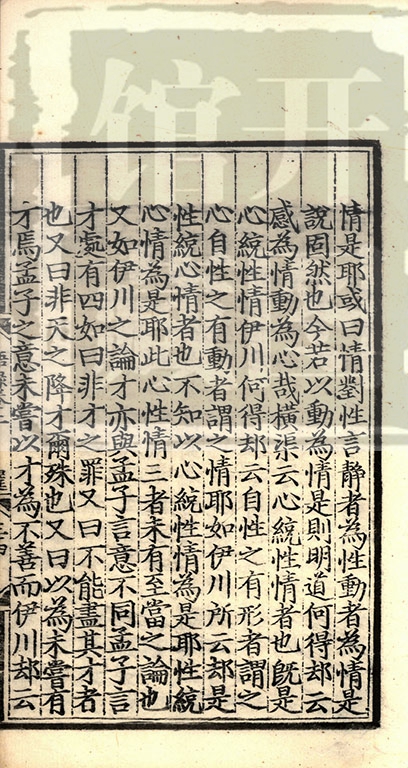 情是耶或曰情對性言靜者為性動者為情是
說固然也今若以動為情是則明道何得却云
感為情動為心哉橫渠云心統性情者也既是
心統性情伊川何得却云自性之有形者謂之
心自性之有動者謂之情耶如伊川所云却是
性統心情者也不知以心統性情為是耶性統
心情為是耶此心性情三者未有至當之論也
又如伊川之論才亦與孟子言意不同孟子言
才處有四如曰非才之罪又曰不能盡其才者
也又曰非天之降才爾殊也又曰以為未嘗有
才焉孟子之意未嘗以才為不善而伊川却云
開
館